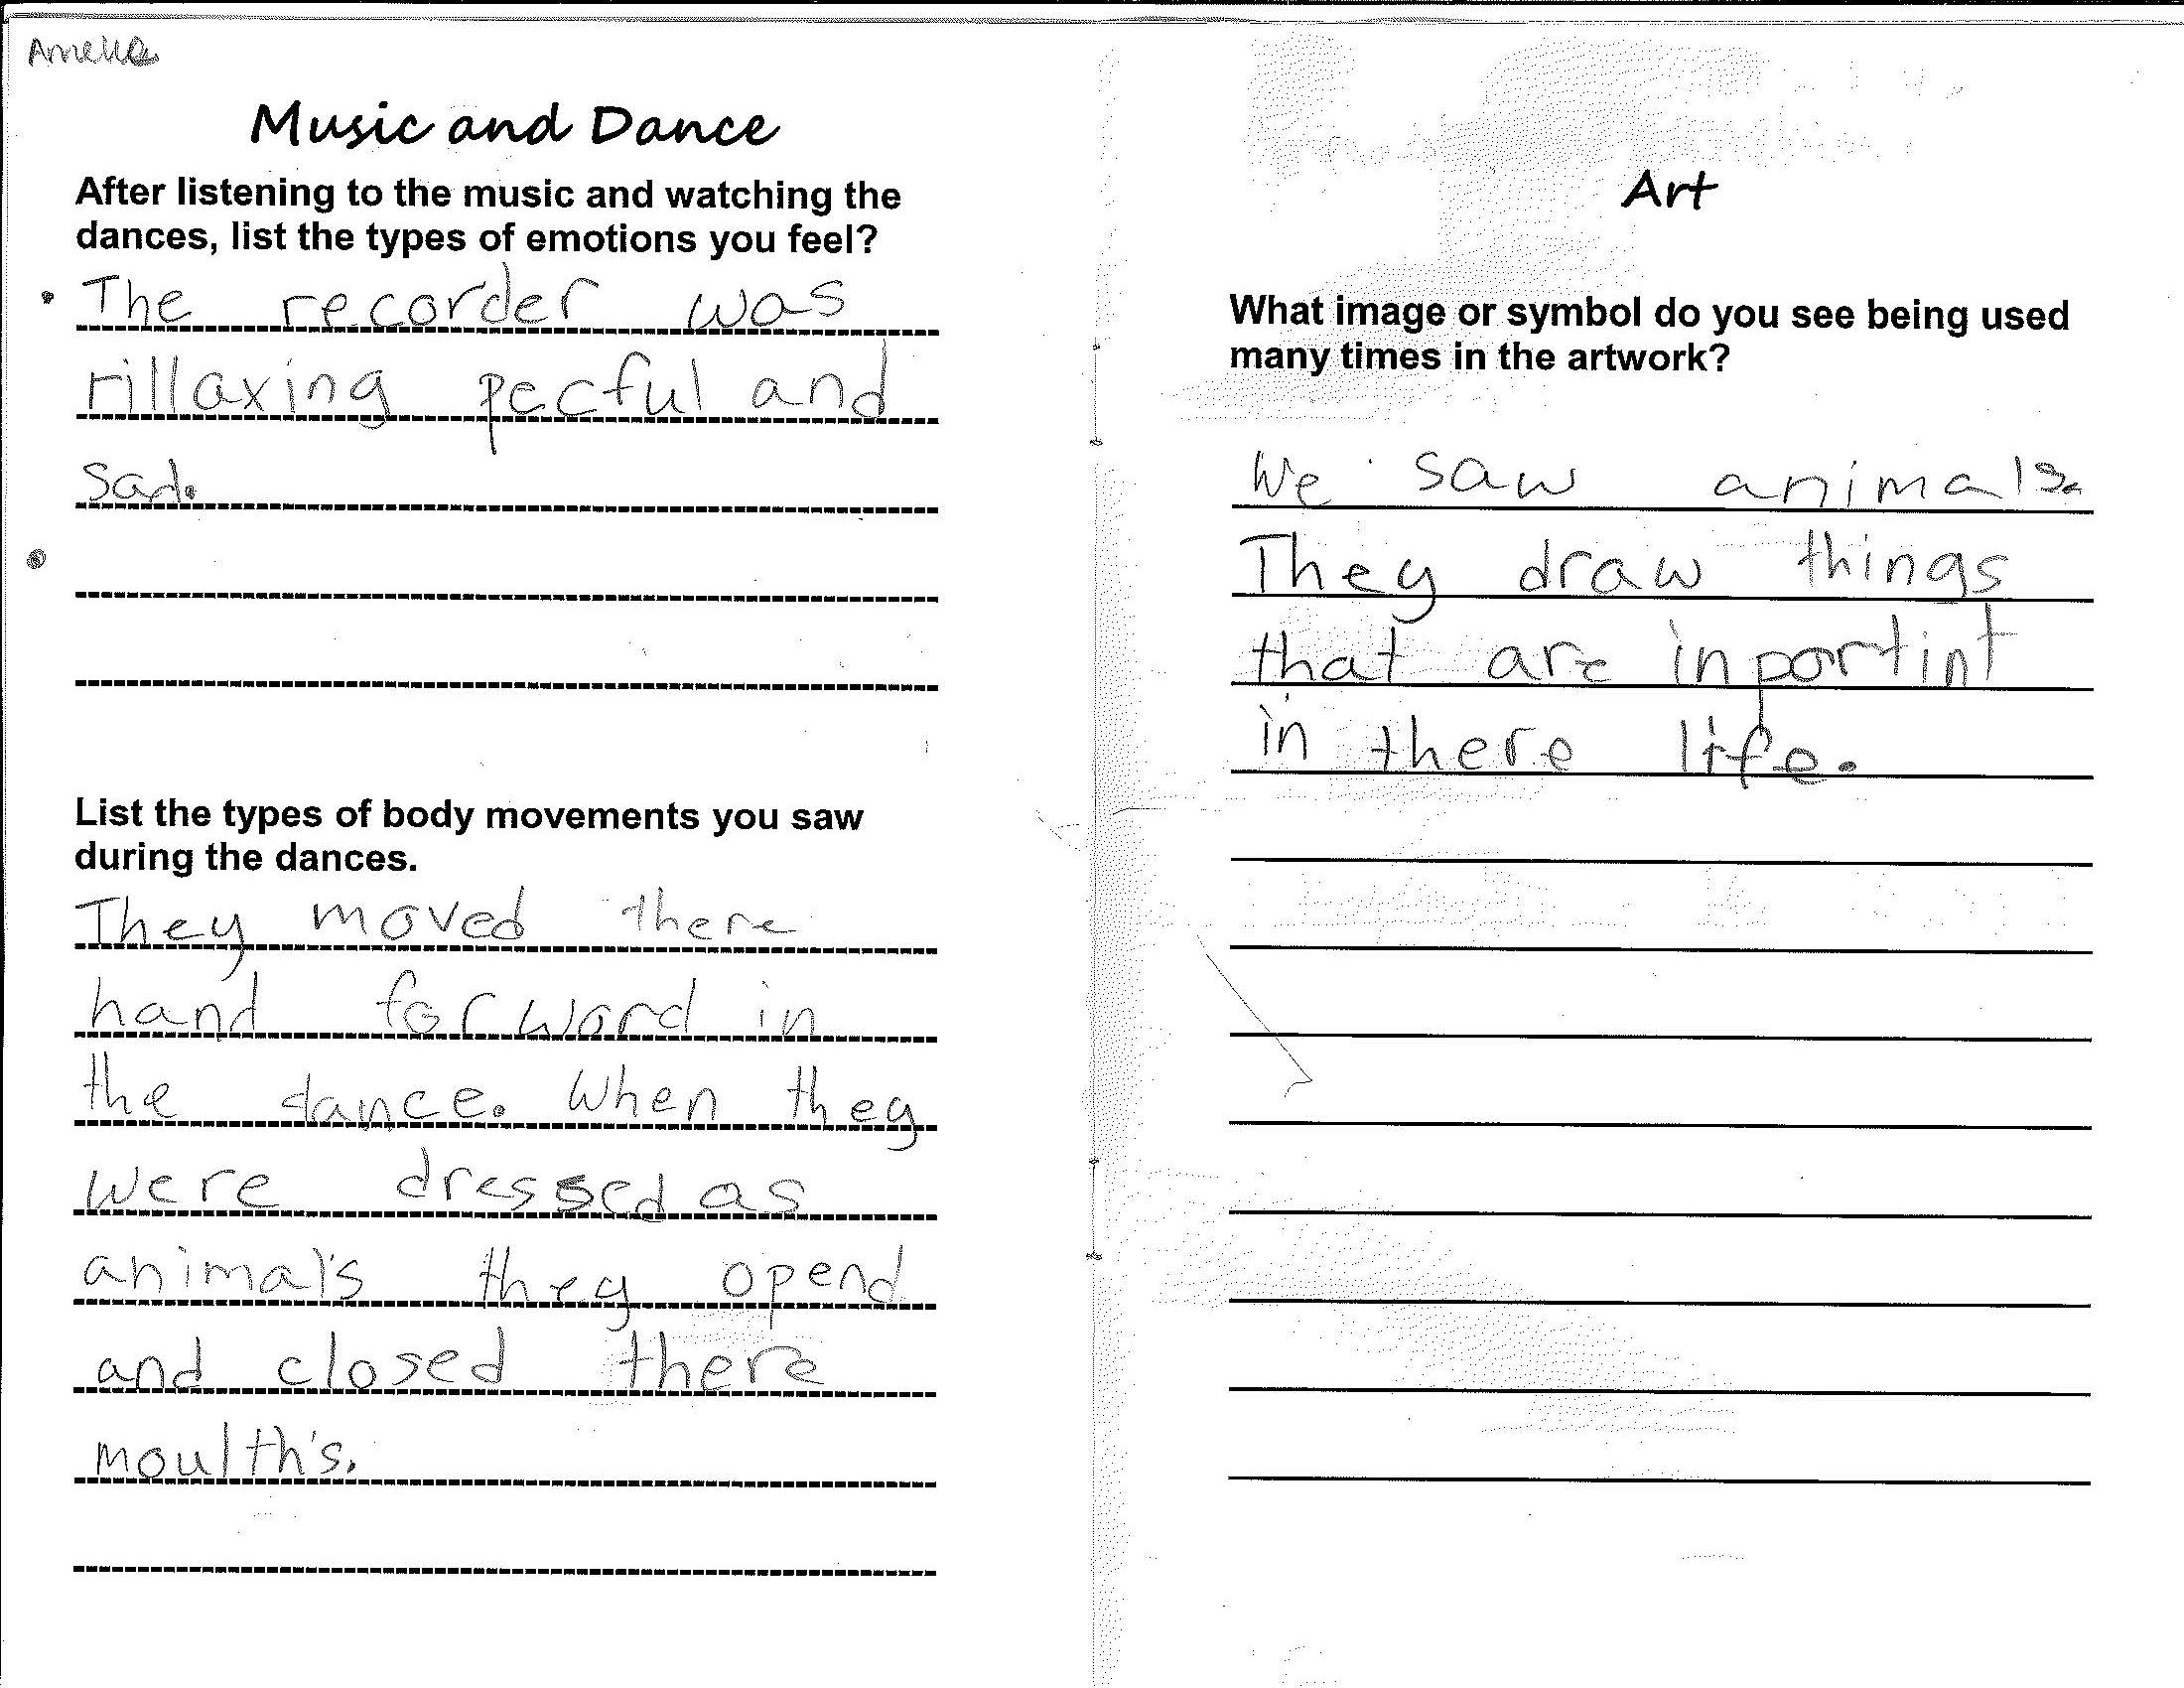 Amelia
Music and Dance
After listening to the music and watching the
dances, list the types of emotions you feel?
• The recorder was
rillaxing pecful and
sad.
•
List the types of body movements you saw
during the dances.
They moved there
hand forward in
the dance. When they
were dressed as
animal's they opend
and closed there
moulth's.
Art
What image or symbol do you see being used
many times in the artwork?
We saw animals.
They draw things
that are inportint
in there life.